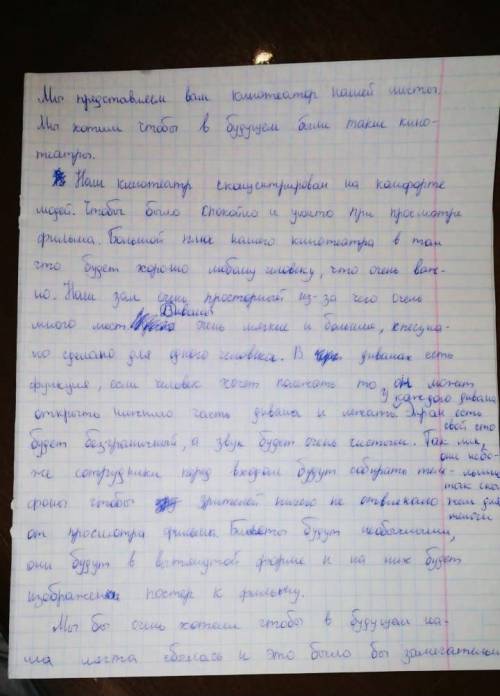 Мы представляем вам кинотеатор нашей мисты.
Мы хотим чтобы в будущем были такие кино-
театры.
Наш кинотеатр сканцентрирован на комфорте
людей. Чтобы было спокойно и уютно при просмотре
фильма. Большой плюс нашего кинотеатра в том
что будет хорошо любому человеку, что очень важ-
но. Наш зал очень просторный из-за чего очень
много мест. Диваны очень мягкие и большие, специа-
но сделано для одного человека. В диванах есть
функция, если человек хочет полежать то он может
открыть нижнию часть дивана и лежать. У каждого дивана есть
Экран
свой сто
будет безграничный, а звук будет очень чистым. Так
лик,
они небо-
же сотрудники перед входом будут собирать теле-
льшие
так ска
фоны чтобы зрителей ничего не отвлекало
жем для
мелочи
от просмотра фильма. Билеты будут необычными,
они будут в вытянутой форме и на них будет
изображен постер к фильму.
Мы бы очень хотели чтобы в будущем на-
ша мечта сбылась и это было бы замечательно